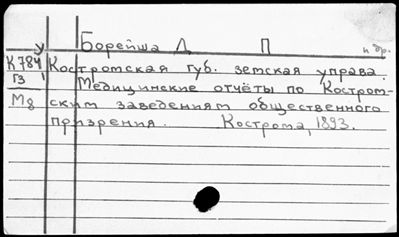 У Борейша Л. П. и др.
К784 Костромская губ. земская управа.
Г3 Медицинские отчёты по Костром-
М8 ским заведениям общественного
призрения. Кострома, 1893.